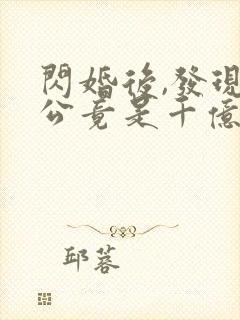 閃婚後,發現
公竟是千億
邱蓉